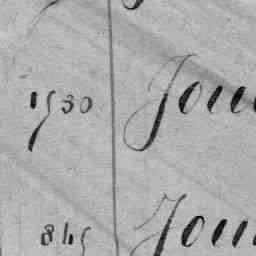 1530 Jou
845 Jou